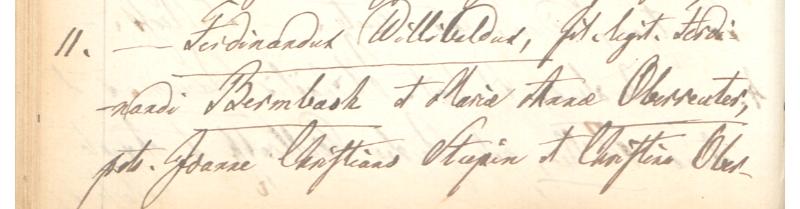 11. — Ferdinandus Willibaldus, fil. legit. Ferdi-
nandi Bermbach et Mariæ Annæ Oberreuter,
ptr. Joanne Christiano Stupin et Christina Ober-